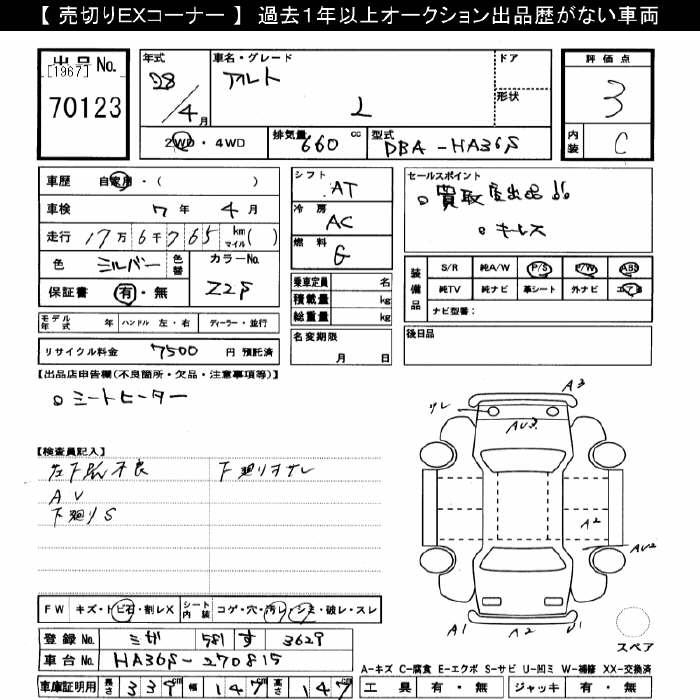 【 売切りEXコーナー 】 過去１年以上オークション出品歴がない車両
出品No.
[1967]
70123
年式 28/4月
車名・グレード アルト L
ドア
形状
2WD・4WD
排気量 660 cc
型式 DBA-HA36S
評価点 3
内装 C
車歴 自家用・( )
車検 7年 4月
走行 17万6千765 km マイル( )
色 シルバー 色替
カラーNo. Z2S
保証書 有・無
シフト AT
冷房 AC
燃料 G
乗車定員 名
積載量 kg
総重量 kg
名変期限 月 日
セールスポイント
○ 買取店出品!!
○ キーレス
装備品 S/R 純A/W P/S P/W ABS
純TV 純ナビ 革シート 外ナビ エアB
ナビ型番：
後日品
モデル年式 年 ハンドル 左・右 ディーラー・並行
リサイクル料金 7500 円 預託済
【出品店申告欄(不良箇所・欠品・注意事項等)】
○ シートヒーター
【検査員記入】
下廻りサビ
A U
下廻りS
A3
AU3
A2
AU2
A1 A2 U1
スペア
FW キズ・トビ石・割レX シート内装 コゲ・穴・汚レ・シミ・破レ・スレ
登録No. 581 す 3629
車台No. HA36S-270815
車庫証明用 長さ 339cm 幅 147cm 高さ 147cm
A-キズ C-腐食 E-エクボ S-サビ U-凹ミ W-補修 XX-交換済
工具 有・無 ジャッキ 有・無